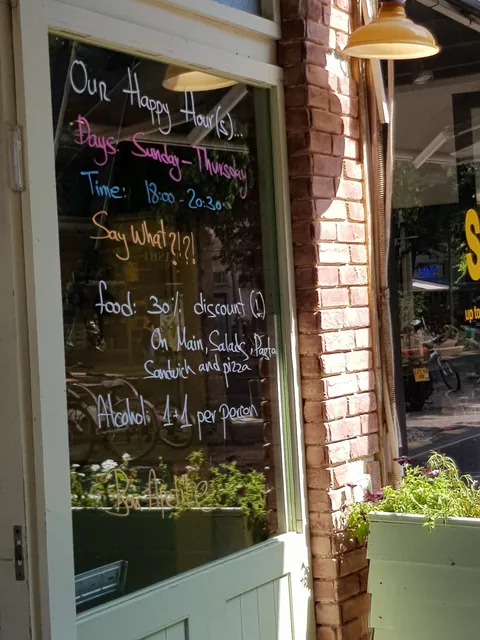 Our Happy Hour(s)...
Days: Sunday - Thursday
Time: 18:00 - 20:30
Say What?!?!
food: 30% discount (!)
On Main, Salads, Pasta
Sandwich and pizza
Alcohol: 1+1 per porcon
S
up to